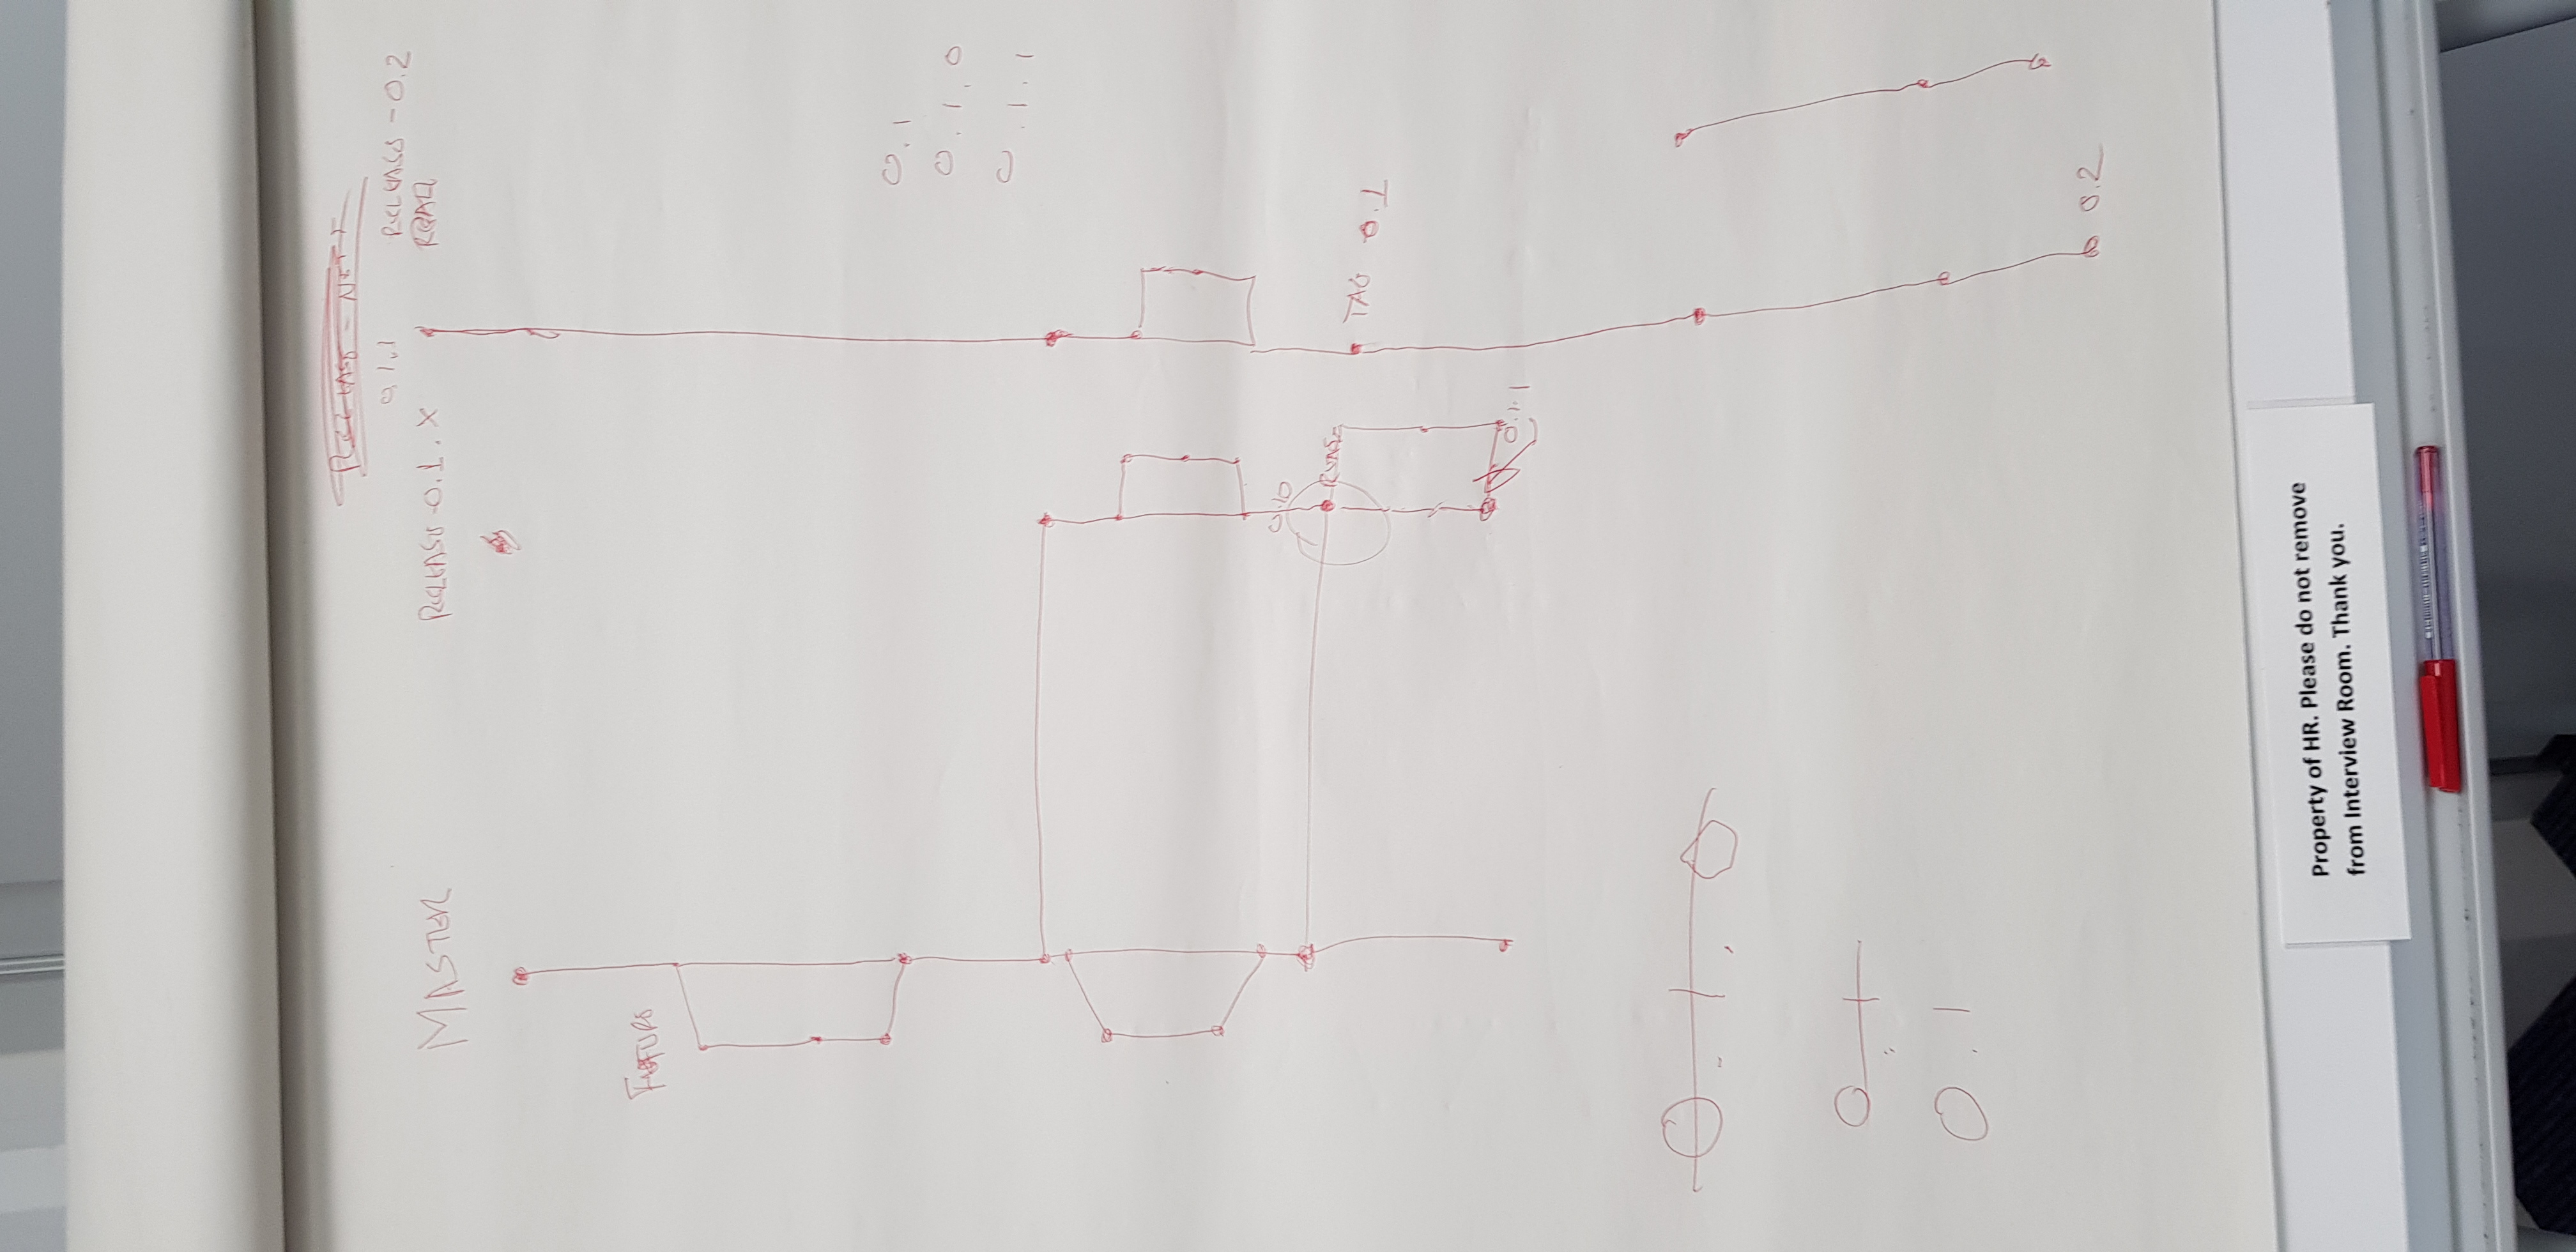 RELEASE - NEXT
0.1.1
RELEASE - 0.2
MASTER
RELEASE-0.1.X
0.1
0.1.0
0.1.1
0.10
TAG 0.1
0.1.1
0.1.0
0.1
0.1
0.2
Property of HR. Please do not remove
from Interview Room. Thank you.